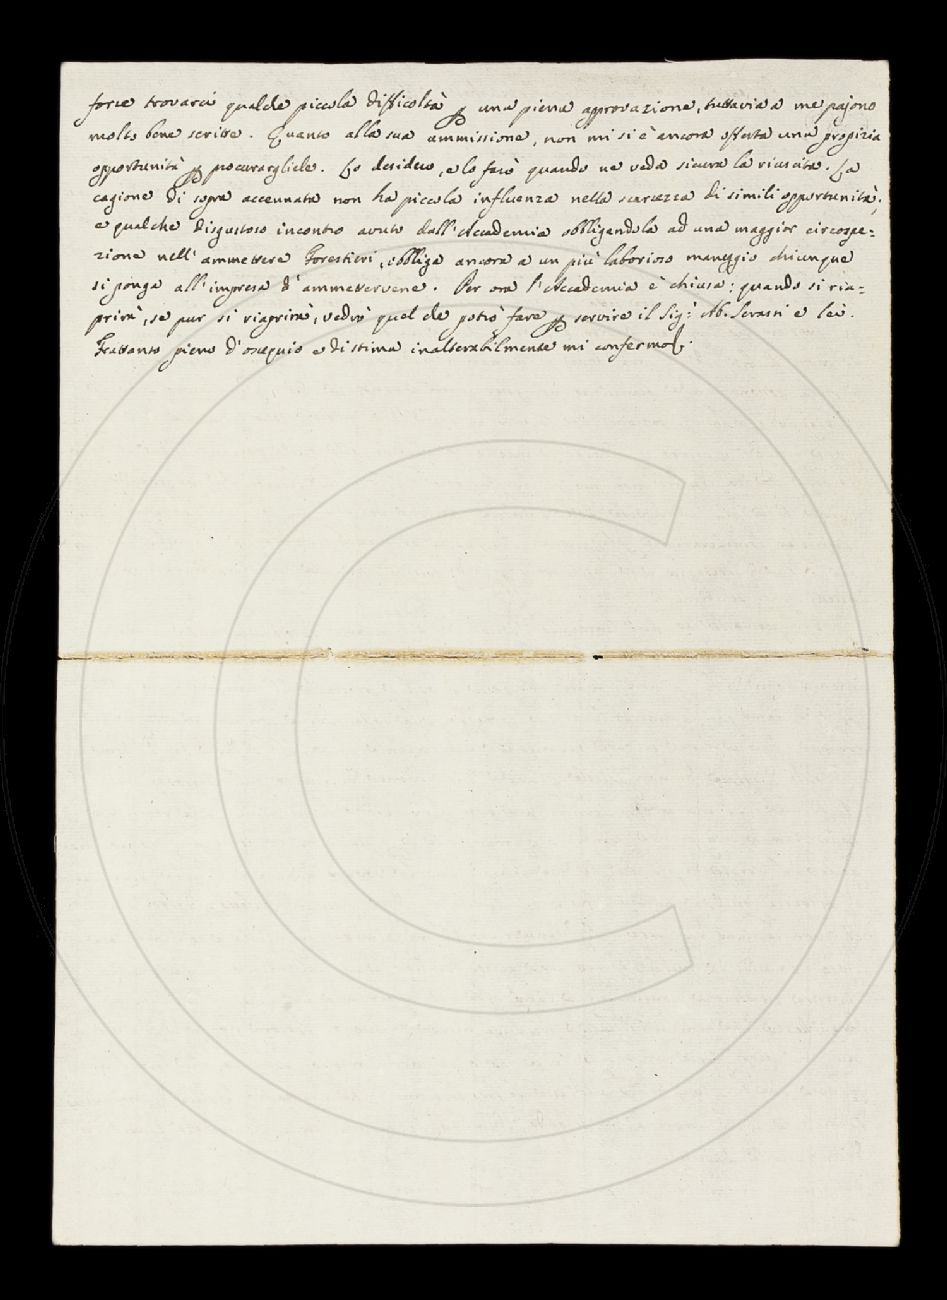 forse trovarci qualche piccola difficoltà p una piena approvazione, tuttavia a me pajono
molto bene scritte. Quanto alla sua ammissione, non mi si è ancora offerta una propizia
opportunità p procurargliele. Lo desidero, e lo farò quando ne veda sicura la riuscita. La
cagione di sopra accennata non ha piccola influenza nella scarsezza di simili opportunità;
e qualche disgustoso incontro avuto dall'Accademia obbligandola ad una maggior circospe=
zione nell'ammettere Forestieri, obbliga ancora a un più laborioso maneggio chiunque
si ponga all'impresa d'ammettervene. Per ora l'Accademia è chiusa: quando si ria=
prirà, se pur si riaprirà, vedrò quel che potrò fare p servire il Sig: Ab. Serassi e lei.
Frattanto pieno d'ossequio e di stima inalterabilmente mi confermo